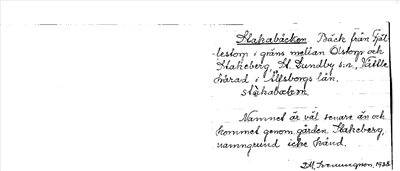 Stakabäcken. Bäck från Fjäl-
lestom i gräns mellan Olstorp och
Stakeberg, St. Lundby s:n, Vättle
härad i Älfsborgs län.
stakabæken
Namnet är väl senare än och
kommet genom gården Stakeberg,
namngrund icke känd.
1938